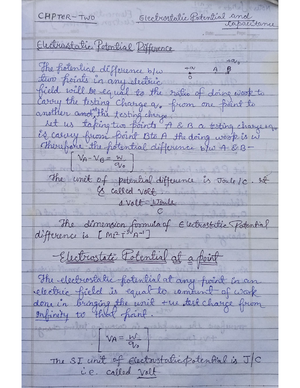 CHAPTER-TWO
Electrostatic Potential and Capacitance
Electrostatic Potential Difference
The potential difference b/w
two points in any electric
field will be equal to the ratio of doing work to
carry the testing charge q₀ from one point to
another and the testing charge.
Let us taking two points A & B a testing charge q₀
is carry from point B to A the doing work is W
Therefore the potential difference b/w A & B-
VA - VB = W/q₀
The unit of potential difference is Joule/C. It
is called Volt.
1 Volt = 1 Joule/C
The dimension formula of Electrostatic Potential
difference is
Electrostatic Potential at a point
The electrostatic potential at any point in an
electric field is equal to amount of work
done in bringing the unit +ve test charge from
infinity to that point.
VA = W/q₀
The SI unit of Electrostatic Potential is J/C
i.e. called Volt